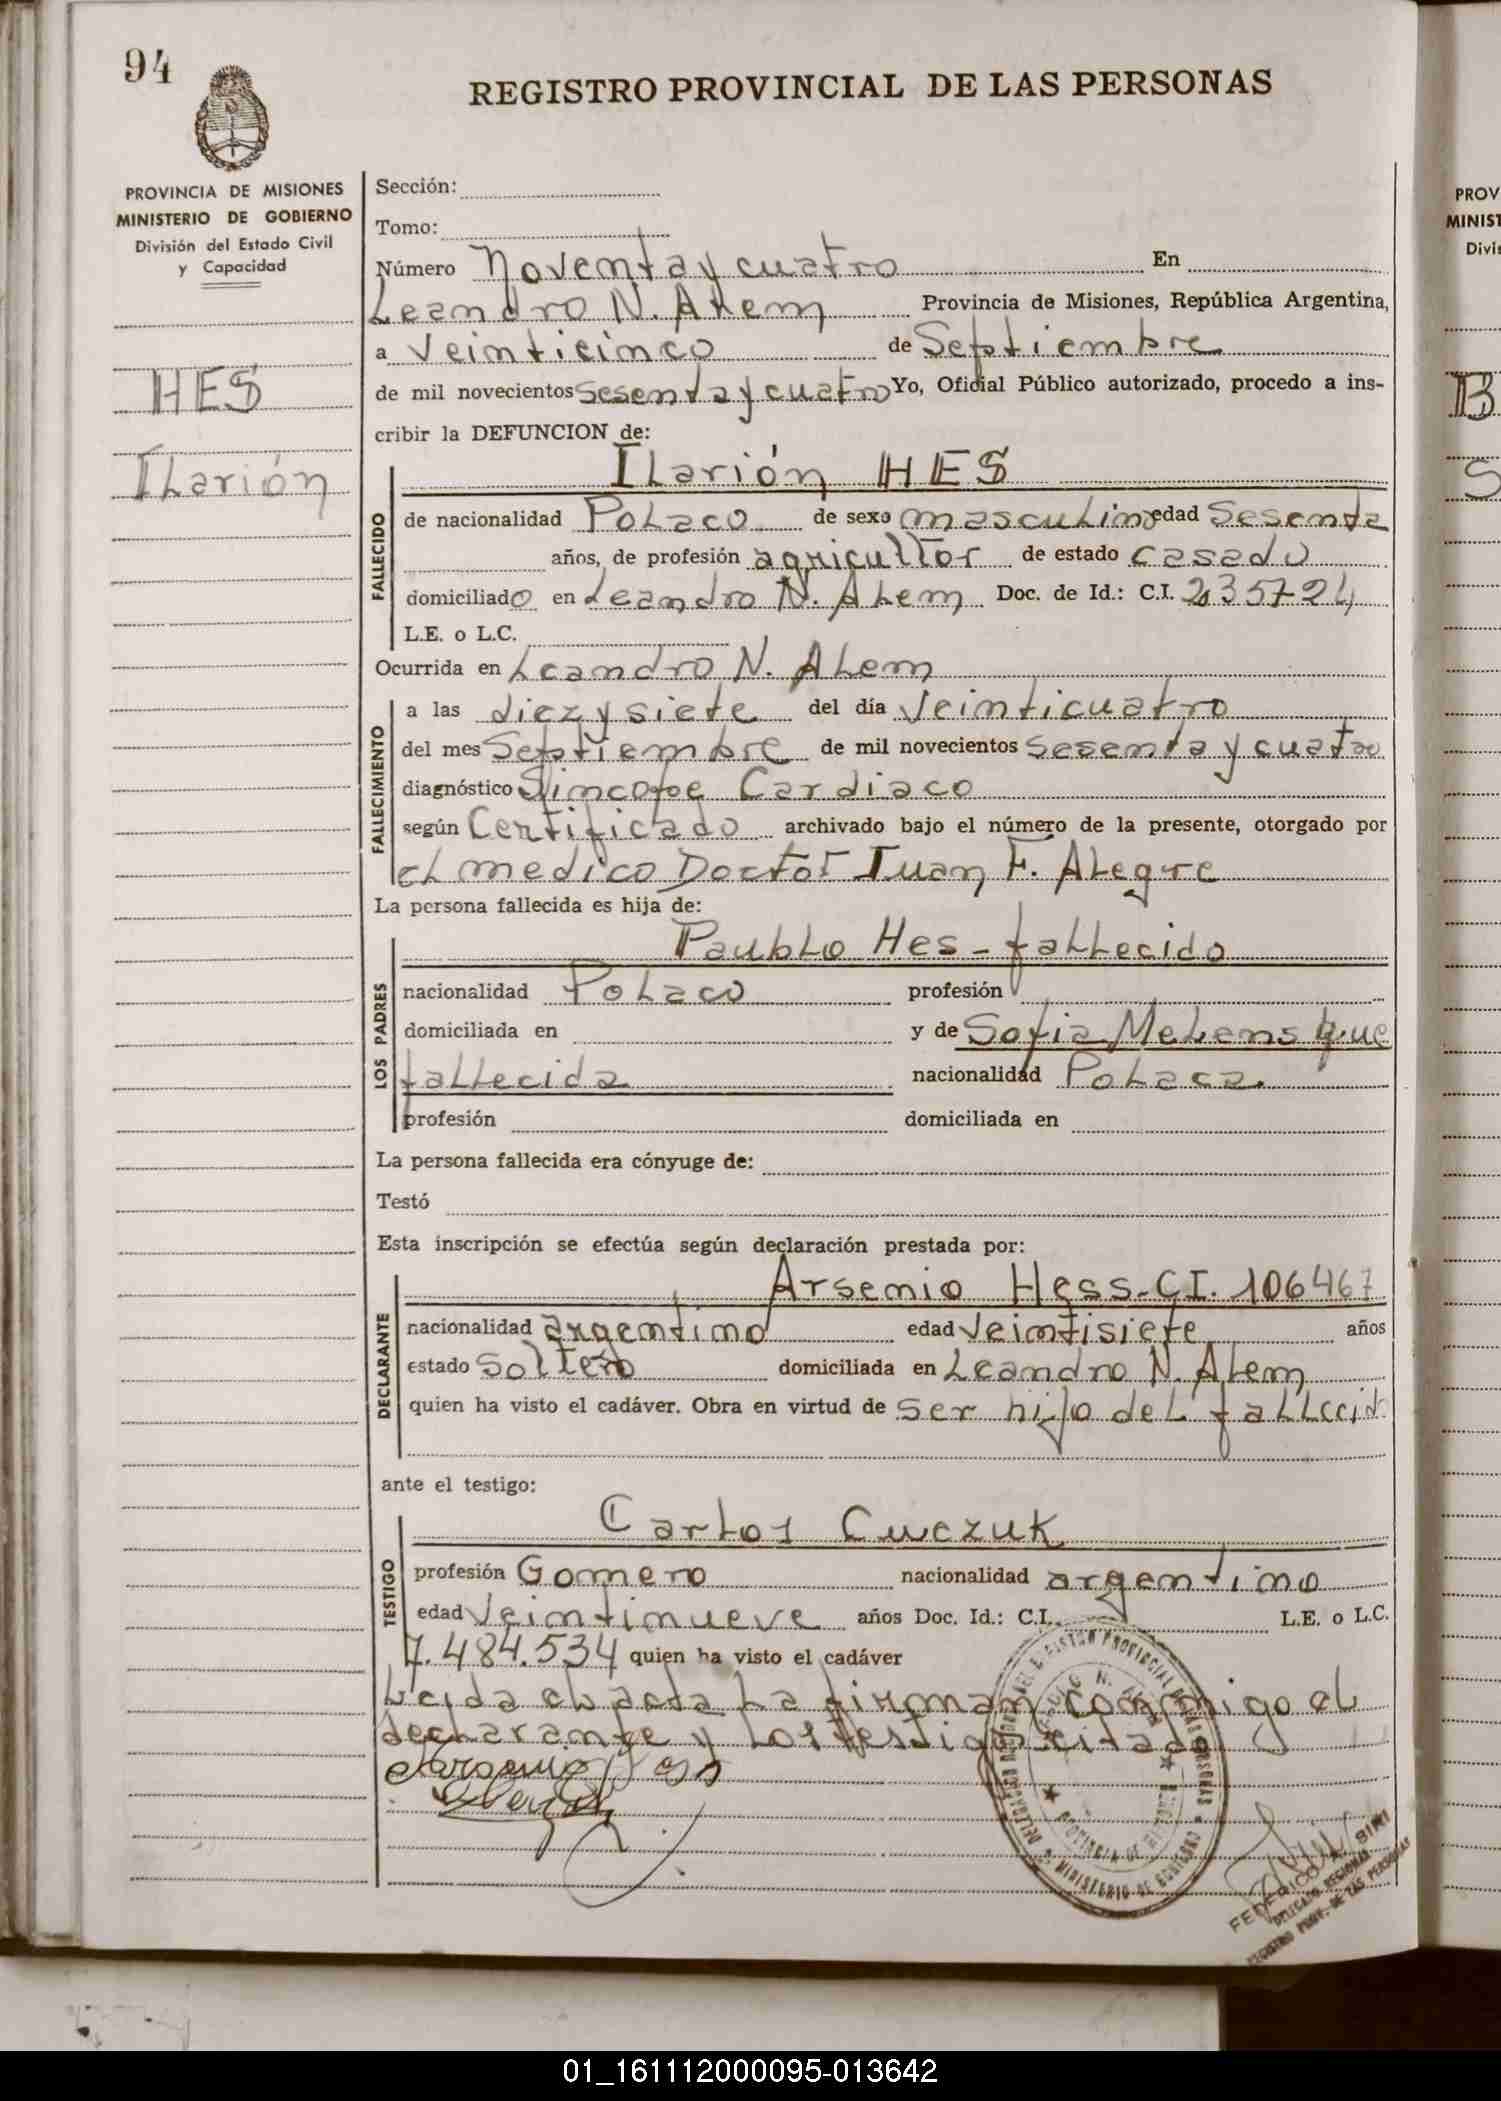 94
REGISTRO PROVINCIAL DE LAS PERSONAS
PROVINCIA DE MISIONES
MINISTERIO DE GOBIERNO
División del Estado Civil
y Capacidad
HES
Ilarión
Sección:
Tomo:
Número Noventa y cuatro En
Leandro N. Alem Provincia de Misiones, República Argentina,
a Veinticinco de Septiembre
de mil novecientos Sesenta y cuatro Yo, Oficial Público autorizado, procedo a ins-
cribir la DEFUNCION de:
Ilarión HES
FALLECIDO
de nacionalidad Polaco de sexo masculino edad Sesenta
años, de profesión agricultor de estado casado
domiciliado en Leandro N. Alem Doc. de Id.: C.I. 235724
L.E. o L.C.
Ocurrida en Leandro N. Alem
FALLECIMIENTO
a las diez y siete del día Veinticuatro
del mes Septiembre de mil novecientos Sesenta y cuatro
diagnóstico Sincope Cardiaco
según Certificado archivado bajo el número de la presente, otorgado por
el medico Doctor Juan F. Alegre
La persona fallecida es hija de:
LOS PADRES
Paublo Hes - fallecido
nacionalidad Polaco profesión
domiciliada en y de Sofia
fallecida nacionalidad Polaca.
profesión domiciliada en
La persona fallecida era cónyuge de:
Testó
Esta inscripción se efectúa según declaración prestada por:
DECLARANTE
Arsenio Hess - CI. 106467
nacionalidad argentino edad Veintisiete años
estado Soltero domiciliada en Leandro N. Alem
quien ha visto el cadáver. Obra en virtud de ser hijo del fallecido
ante el testigo:
TESTIGO
Carlos Cwczuk
profesión Gomero nacionalidad argentino
edad Veintinueve años Doc. Id.: C.I. L.E. o L.C.
7.484.534 quien ha visto el cadáver
Leida el acta la firman conmigo el
declarante y los testigos citados
Arsenio Hess
MINISTERIO DE GOBIERNO
PROVINCIA DE MISIONES
FEDERICO A. BIRI
DELEGADO REGIONAL
REGISTRO PROV. DE LAS PERSONAS
PROV
MINIST
Divi
B
S
01_161112000095-013642